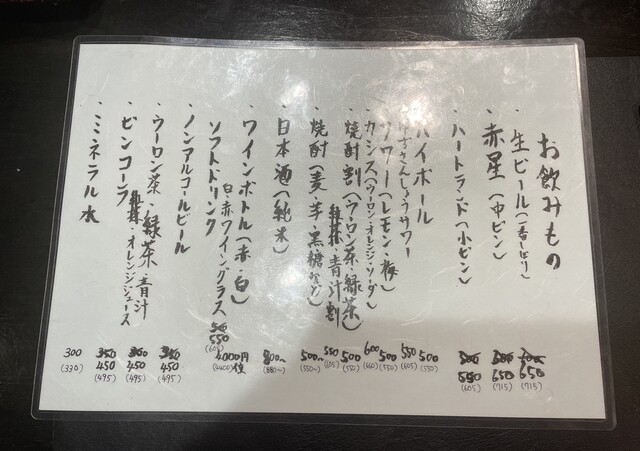 お飲みもの
・生ビール(一番しぼり) 650 (715)
・赤星(中ビン) 650 (715)
・ハートランド(小ビン) 550 (605)
・ハイボール 500 (550)
ゆずさんしょうサワー 550 (605)
・サワー(レモン・梅) 500 (550)
・カシス(ウーロン・オレンジ・ソーダ) 600 (660)
・焼酎割(ウーロン茶・緑茶) 500 (550)
青汁割 550 (605)
・焼酎(麦・芋・黒糖など) 500〜 (550〜)
・日本酒(純米) 800〜 (880〜)
・ワインボトル(赤・白) 4000円位 (4400)
白・赤ワイングラス 550 (605)
ソフトドリンク
・ノンアルコールビール 450 (495)
・ウーロン茶・緑茶・青汁 450 (495)
・ビンコーラ・オレンジジュース 450 (495)
・ミネラル水 300 (330)